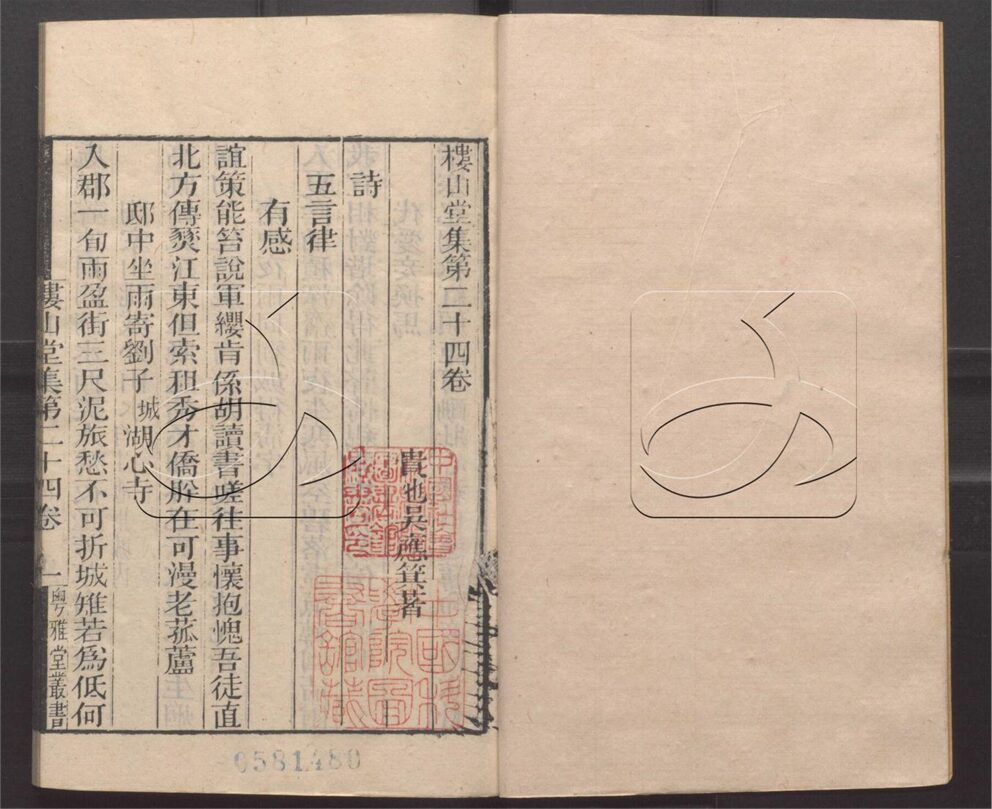 樓山堂集第二十四卷
貴池吳應箕著
詩
五言律
有感
誼策能笞說軍纓肯係胡讀書嗟往事懷抱愧吾徒直
北方傳燹江東但索租秀才僑肸在可漫老菰蘆
邸中坐雨寄劉子城湖心寺
入郡一旬雨盈街三尺泥旅愁不可折城雉若爲低何
樓山堂集第二十四卷 一 粵雅堂叢書
0581480